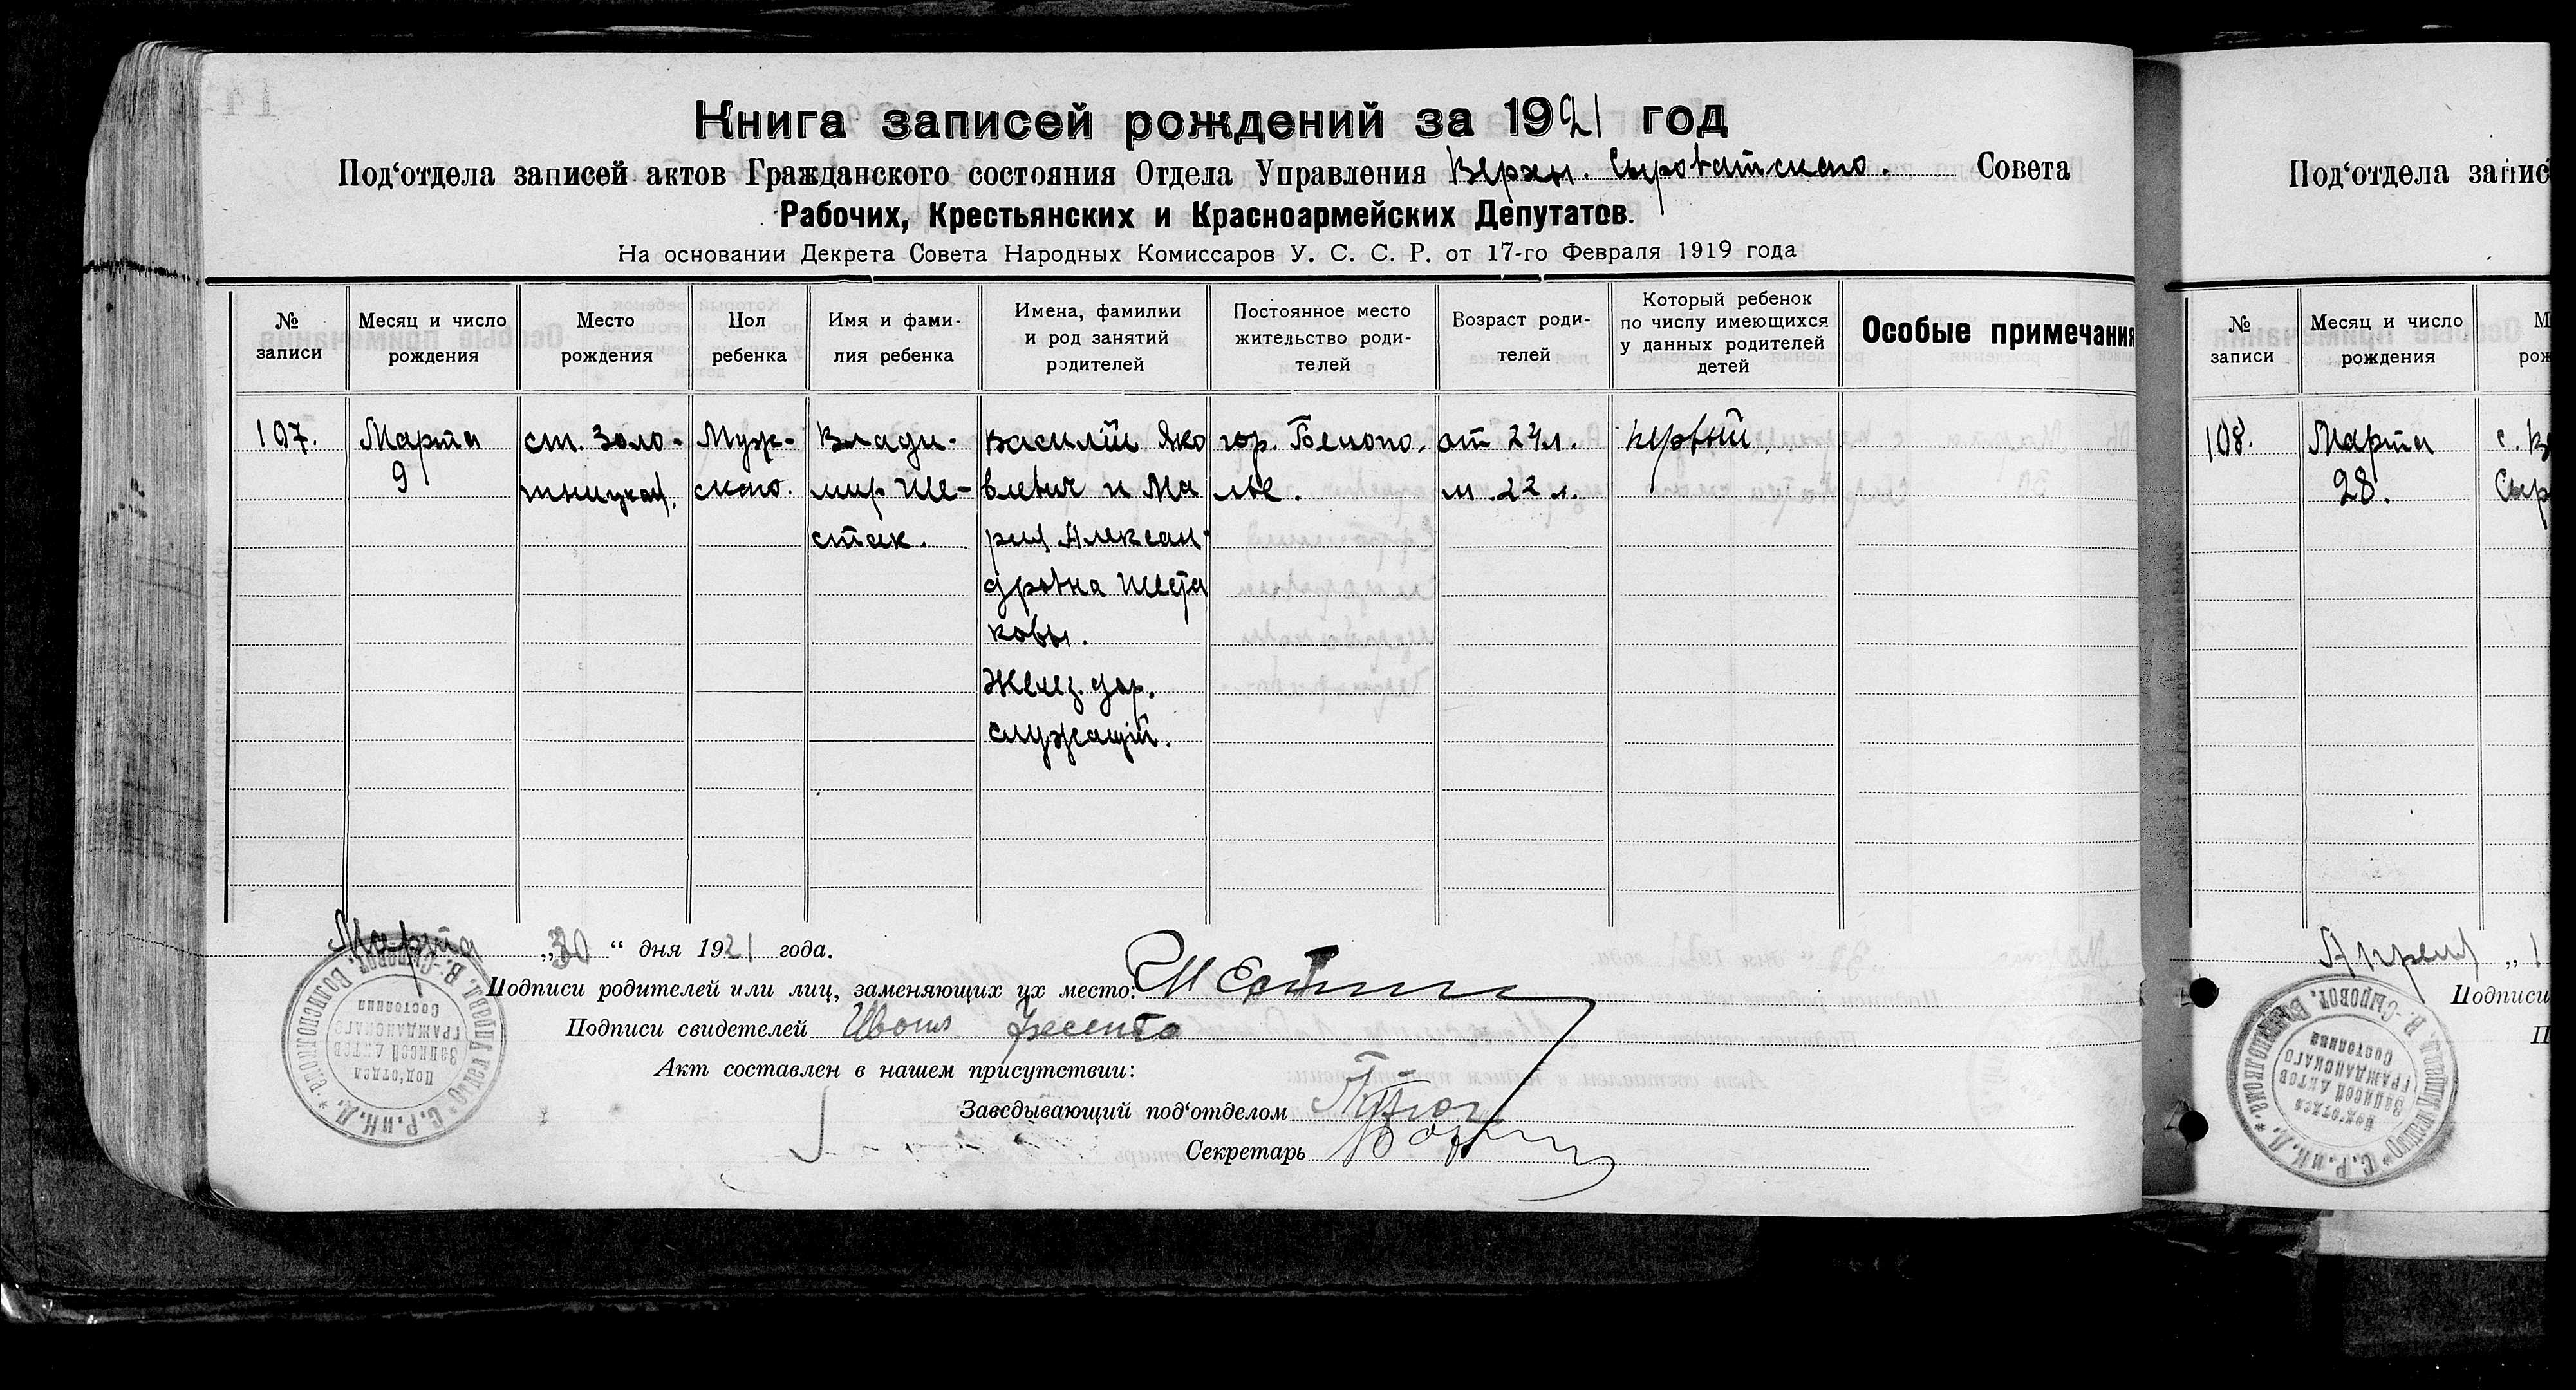 Книга записей рождений за 1921 год
Под‘отдела записей актов Гражданского состояния Отдела Управления Верхн. Сыроватского. Совета
Рабочих, Крестьянских и Красноармейских Депутатов.
На основании Декрета Совета Народных Комиссаров У. С. С. Р. от 17-го Февраля 1919 года
№
записи
Месяц и число
рождения
Место
рождения
Пол
ребенка
Имя и фами-
лия ребенка
Имена, фамилии
и род занятий
родителей
Постоянное место
жительство роди-
телей
Возраст роди-
телей
Который ребенок
по числу имеющихся
у данных родителей
детей
Особые примечания
107.
Марта
9
ст. Золо-
тницкая.
Муж-
ского.
Влади-
мир Ше-
стак.
Василий Яко
влевич и Ма
рия Алексан-
дровна Шеста
ковы.
Желез. дор.
служащий.
гор. Белопо.
лье.
от 24 л.
м. 22 л.
первый.
Марта „30“ дня 1921 года.
Подписи родителей или лиц, заменяющих их место:
Подписи свидетелей
Акт составлен в нашем присутствии:
Заведывающий под‘отделом
Секретарь
Под‘отдел
Записей Актов
Гражданскаго
Состояния
Под‘отдела запис
№
записи
Месяц и число
рождения
М
рож
108.
Марта
28.
с. В
Сыр
Апреля „1
Подписи
П
Под‘отдел
Записей Актов
Гражданскаго
Состояния